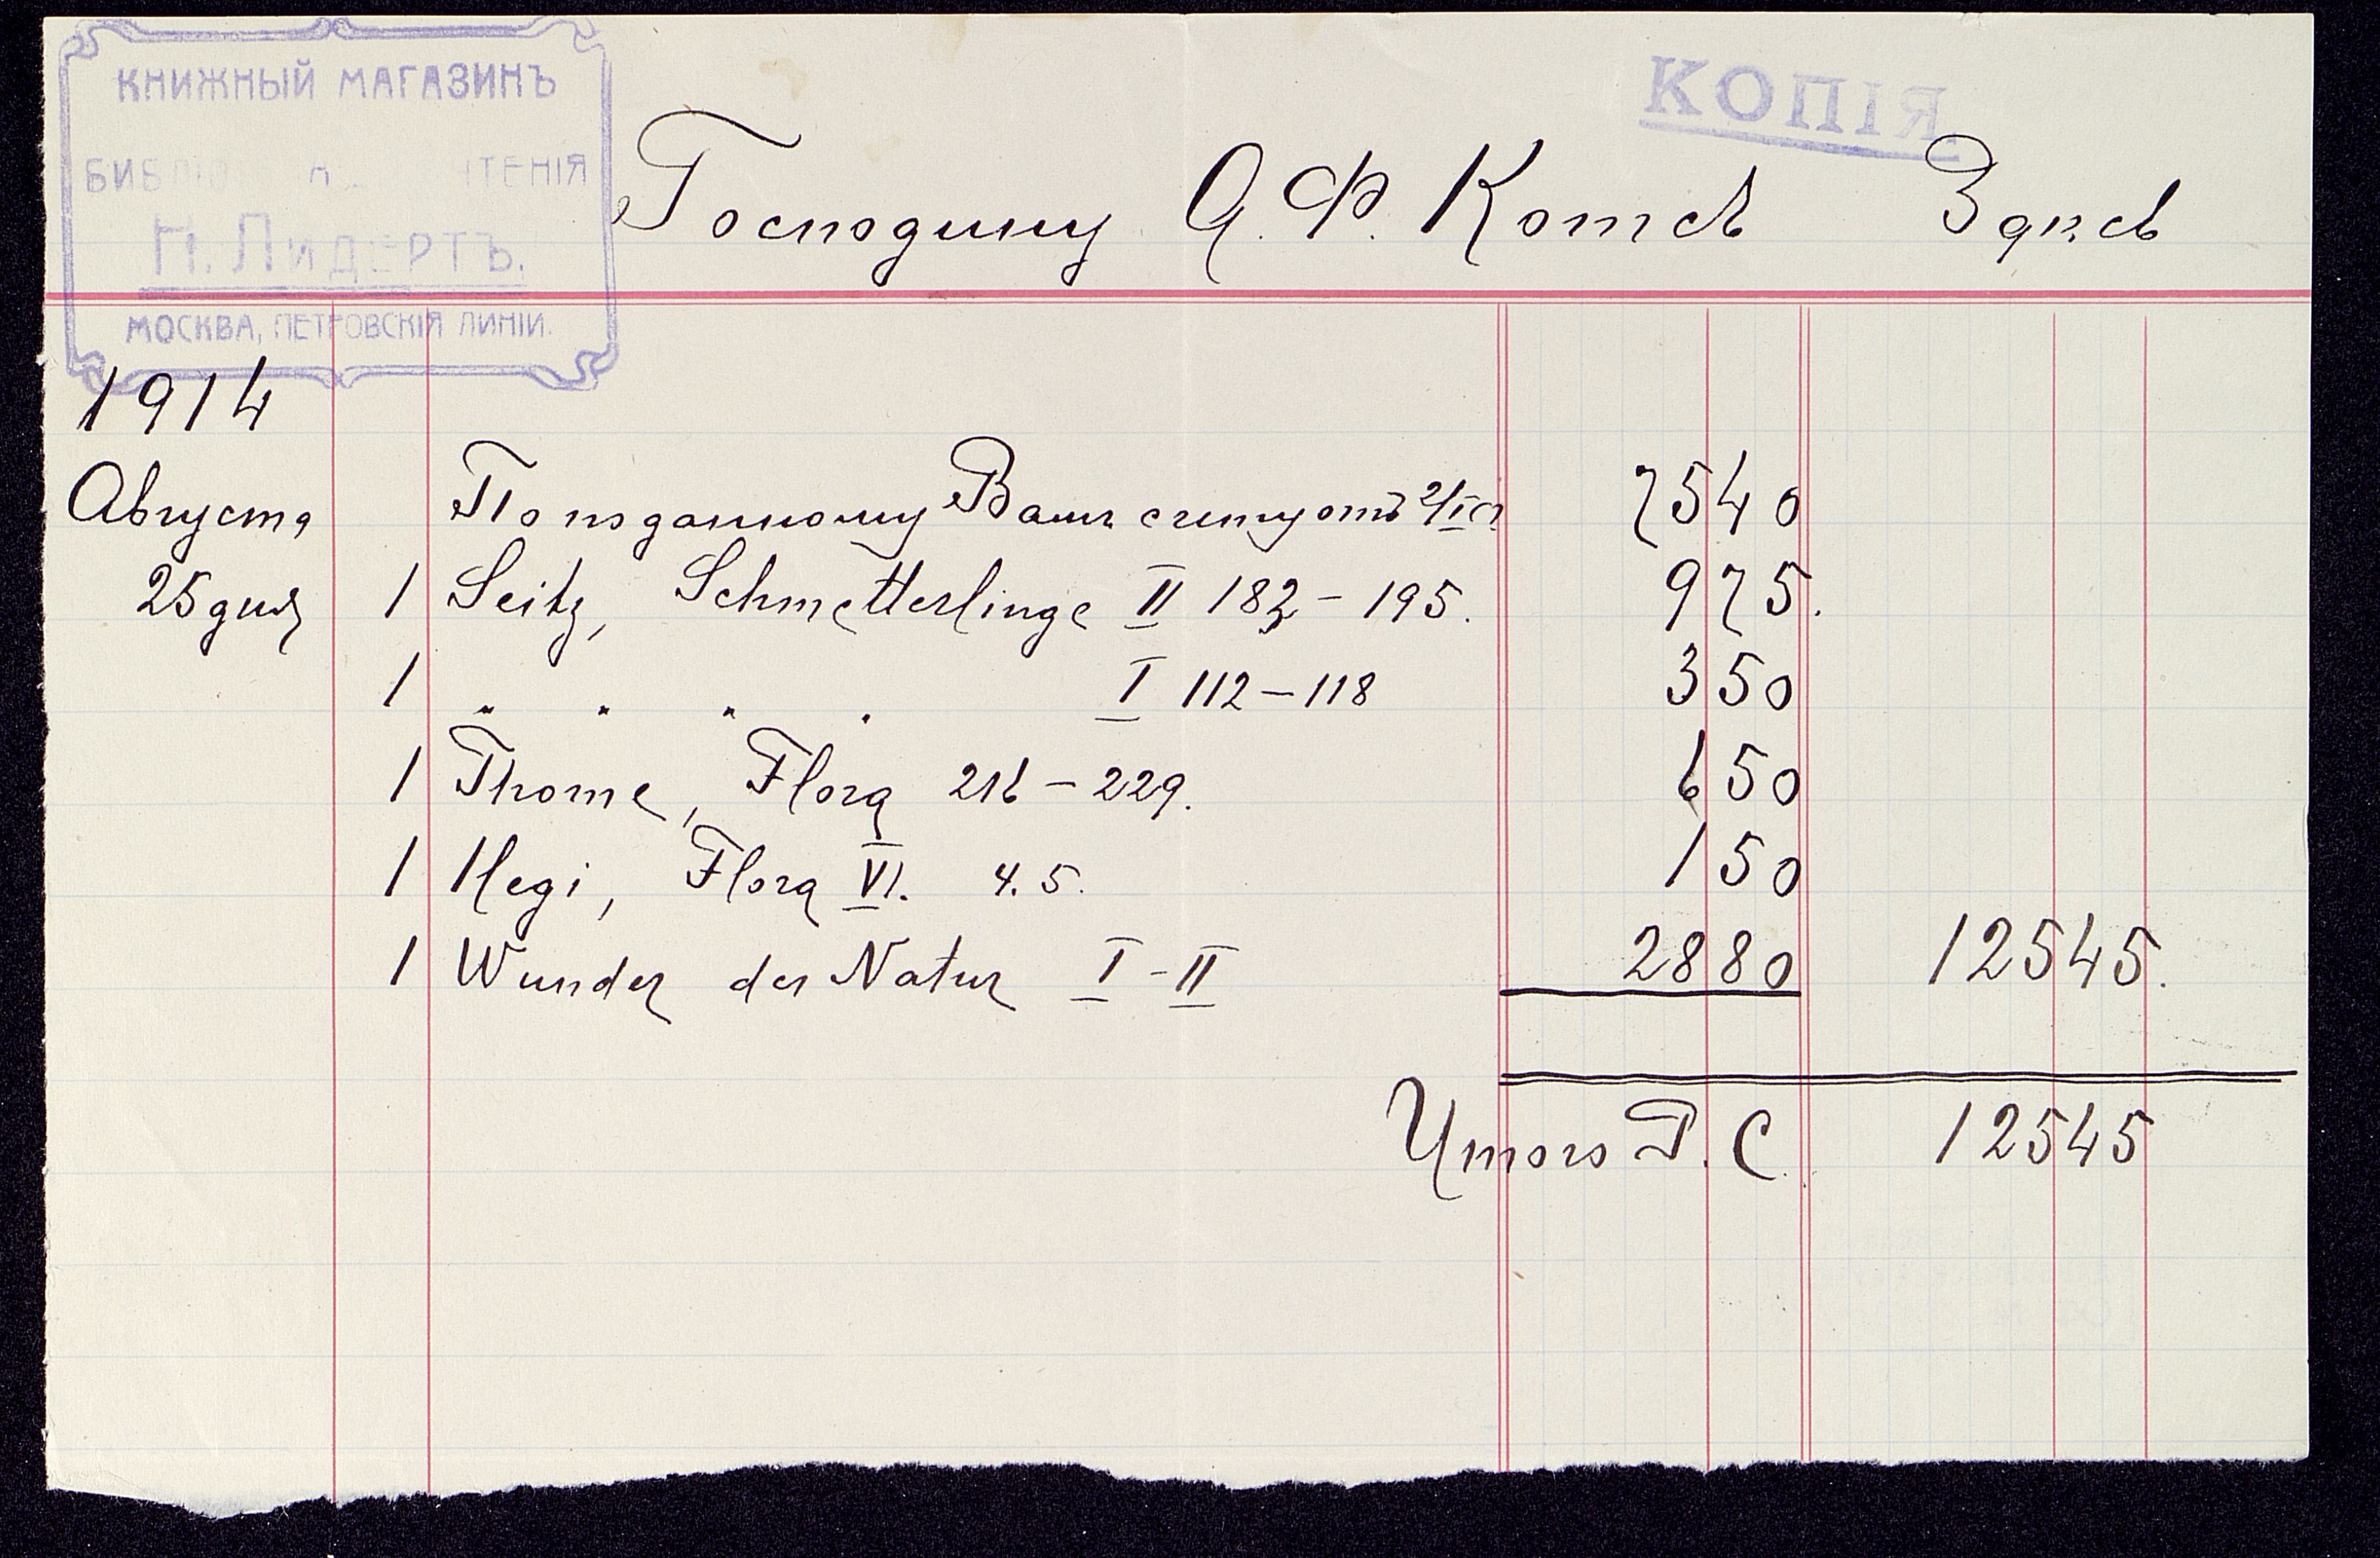 КНИЖНЫЙ МАГАЗИНЪ
ЧТЕНІЯ
Н. ЛИДЕРТЪ.
МОСКВА, ПЕТРОВСКІЯ ЛИНІИ.
КОПІЯ
Господину А. Ф. Котсъ Здѣсь
1914
Августа По поданному Вамъ счету отъ 7540
25 дня 1 Seitz, Schmetterlinge II 182 – 195. 975.
1 " " " " I 112 – 118 350
1 Thome, Flora 216 – 229. 650
1 Hegi, Flora VI. 4. 5. 150
1 Wunder der Natur I - II 2880 12545.
Итого Р. С. 12545